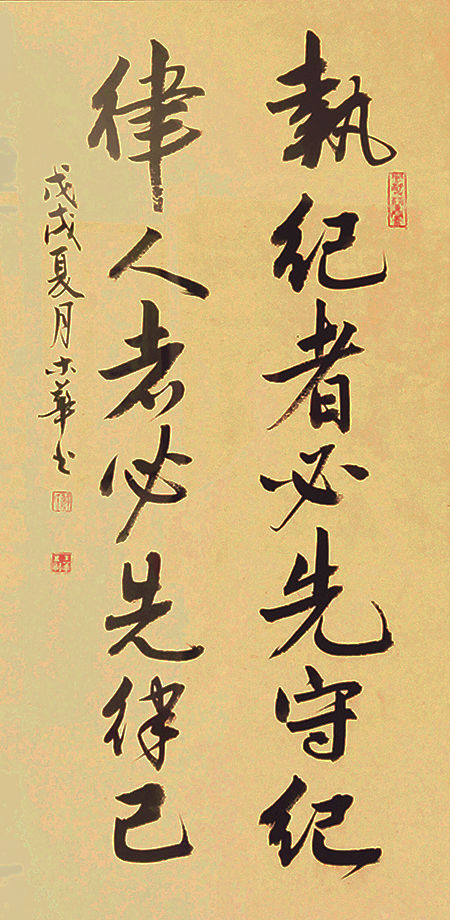 執紀者必先守紀
律人者必先律己
戊戌夏月木華书